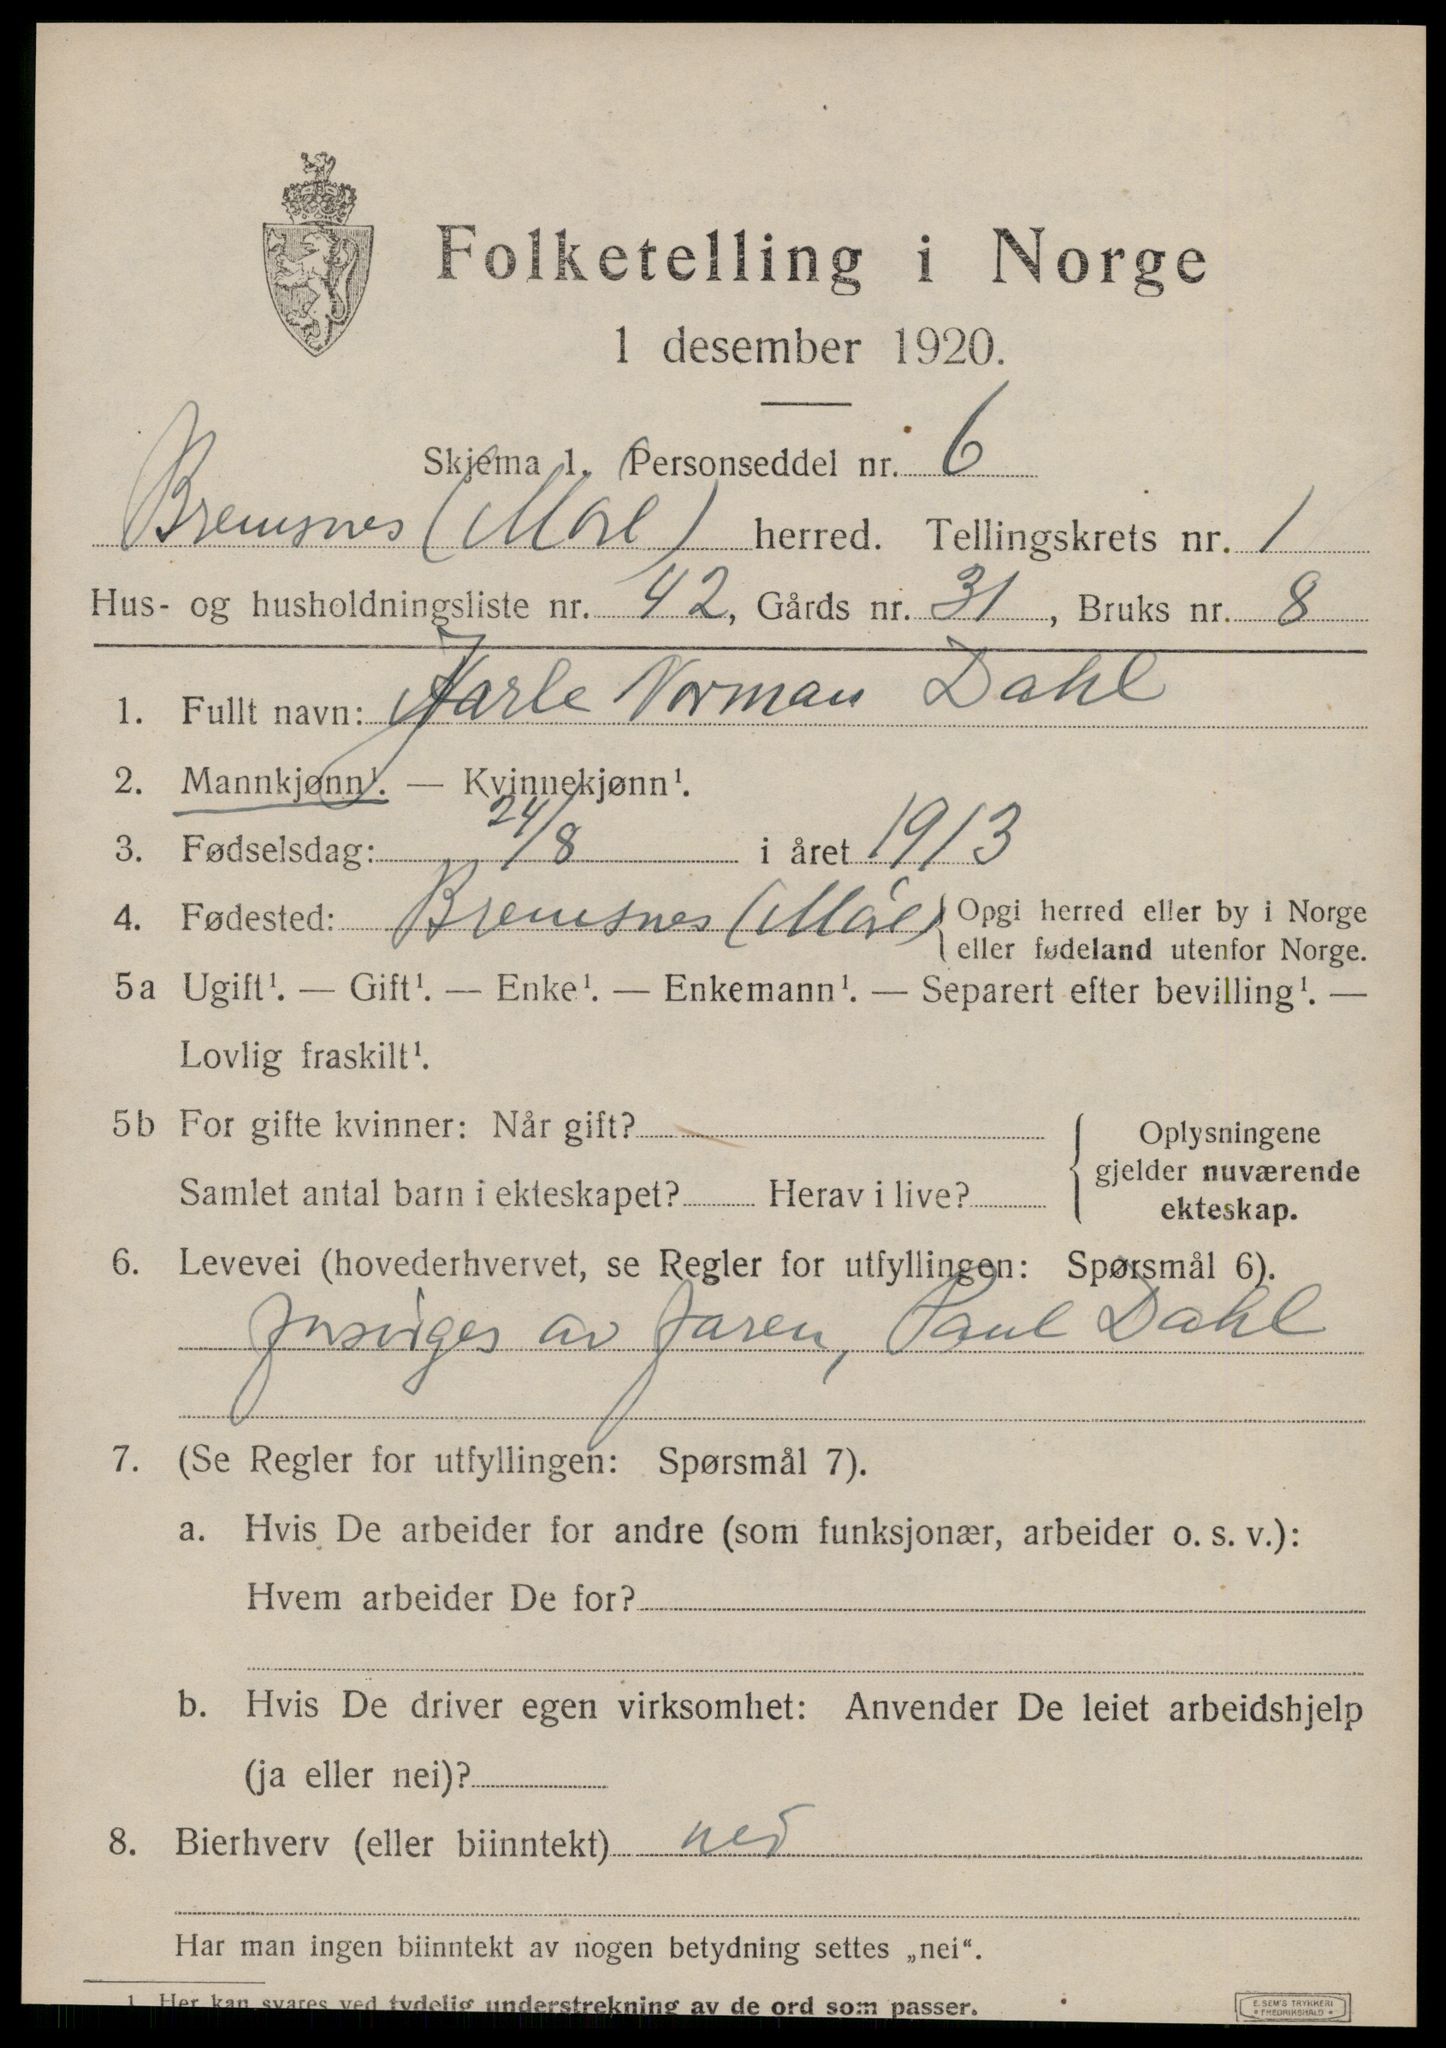 Folketelling i Norge
1 desember 1920.
Skjema 1. Personseddel nr. 6
Bremsnes (Møre) herred. Tellingskrets nr. 1
Hus- og husholdningsliste nr. 42, Gårds nr. 31, Bruks nr. 8
1. Fullt navn: Jarle Norman Dahl
2. Mannkjønn¹. — Kvinnekjønn¹.
3. Fødselsdag: 24/8 i året 1913
4. Fødested: Bremsnes (Møre) { Opgi herred eller by i Norge
eller fødeland utenfor Norge.
5a Ugift¹. — Gift¹. — Enke¹. — Enkemann¹. — Separert efter bevilling¹. —
Lovlig fraskilt¹.
5b For gifte kvinner: Når gift?
Samlet antal barn i ekteskapet? Herav i live?
Oplysningene
gjelder nuværende
ekteskap.
6. Levevei (hovederhvervet, se Regler for utfyllingen: Spørsmål 6).
forsørges av faren, Paul Dahl
7. (Se Regler for utfyllingen: Spørsmål 7).
a. Hvis De arbeider for andre (som funksjonær, arbeider o. s. v.):
Hvem arbeider De for?
b. Hvis De driver egen virksomhet: Anvender De leiet arbeidshjelp
(ja eller nei)?
8. Bierhverv (eller biinntekt) nei
Har man ingen biinntekt av nogen betydning settes „nei“.
1 Her kan svares ved tydelig understrekning av de ord som passer.
E. SEM'S TRYKKERI
FREDRIKSHALD